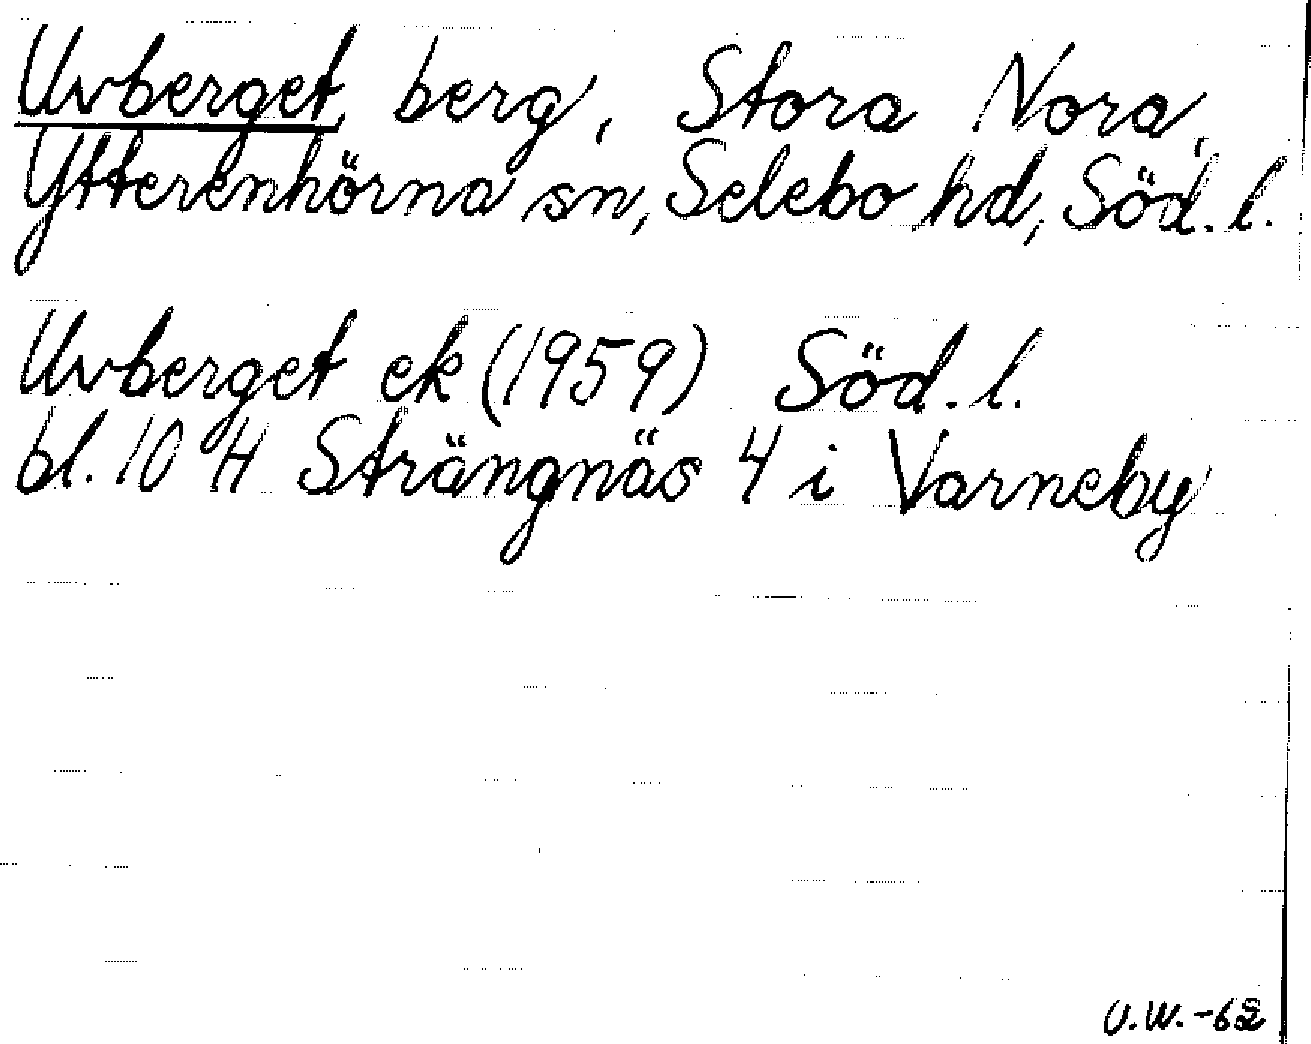 Uvberget, berg, Stora Nora,
Ytterenhörna sn, Selebo hd, Söd. l.
Uvberget ek (1959) Söd. l.
bl. 10 H Strängnäs 4 i Varneby
U.W. -62